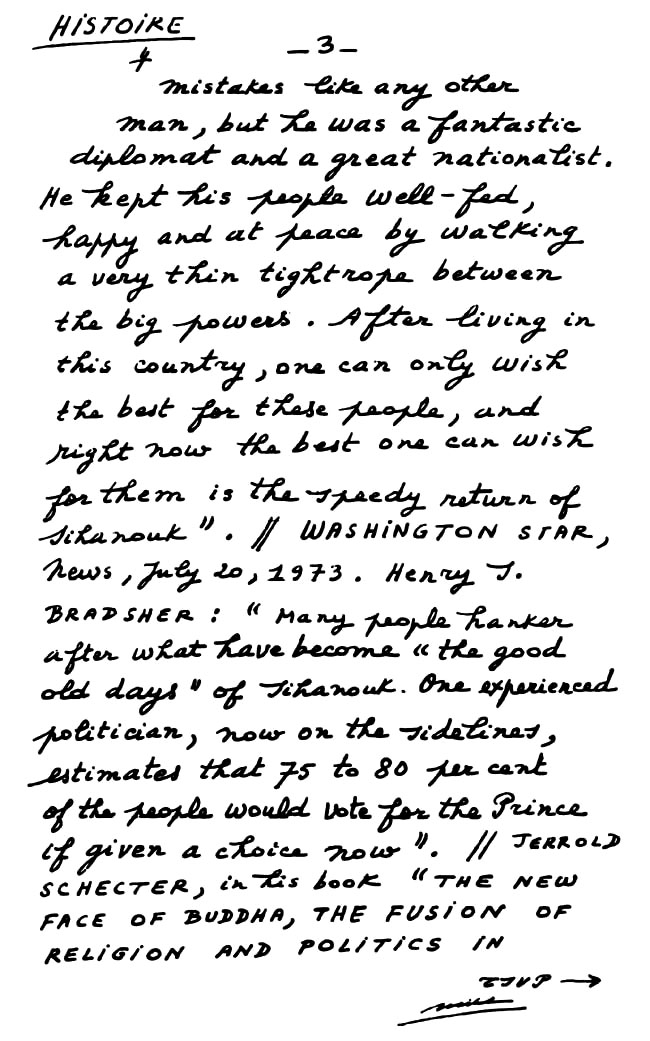 HISTOIRE
- 3 -
mistakes like any other
man, but he was a fantastic
diplomat and a great nationalist.
He kept his people well-fed,
happy and at peace by walking
a very thin tightrope between
the big powers. After living in
this country, one can only wish
the best for these people, and
right now the best one can wish
for them is the speedy return of
Sihanouk". // WASHINGTON STAR,
News, July 20, 1973. Henry S.
BRADSHER : " Many people hanker
after what have become " the good
old days " of Sihanouk. One experienced
politician, now on the sidelines,
estimates that 75 to 80 per cent
of the people would vote for the Prince
if given a choice now ". // JERROLD
SCHECTER, in his book " THE NEW
FACE OF BUDDHA, THE FUSION OF
RELIGION AND POLITICS IN
TSVP →